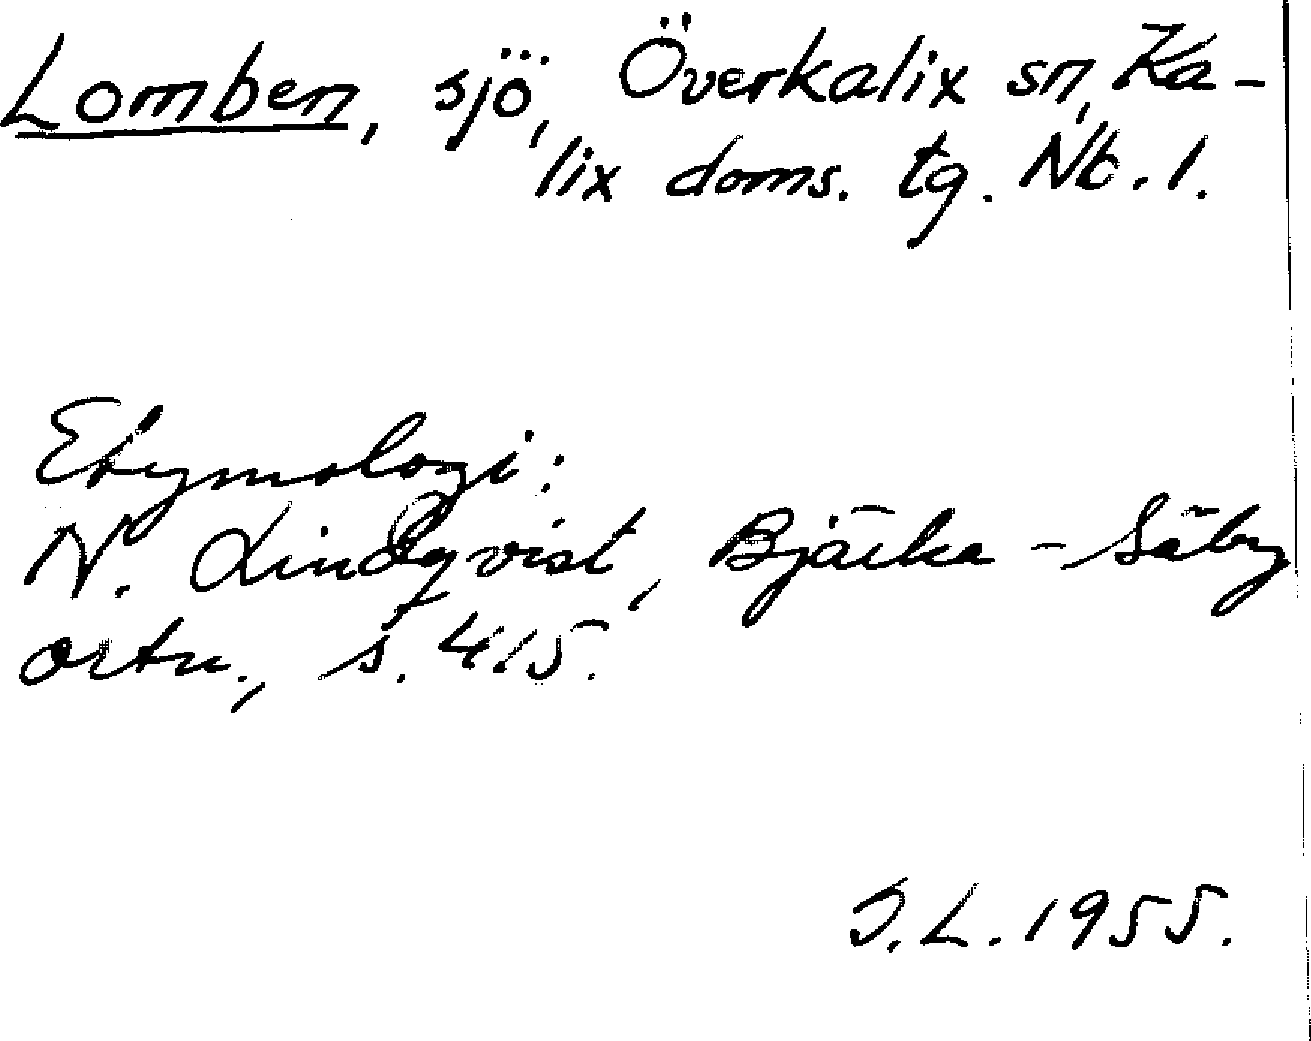 Lomben, sjö, Överkalix sn, Ka-
lix doms. tg. Nb. l.
Etymologi:
N. Lindqvist, Bjärka-Säby
ortn., s. 415.
J.L. 1955.